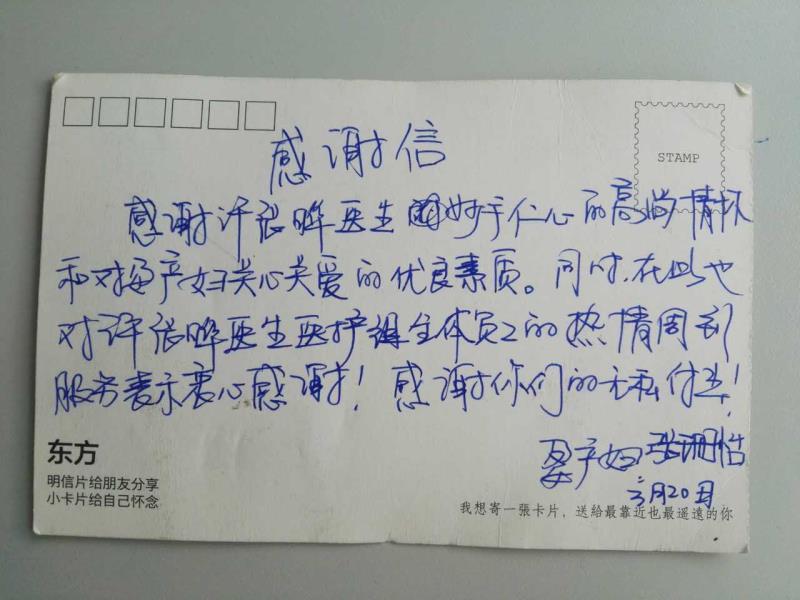 感谢信
STAMP
感谢许张晔医生妙手仁心的高尚情怀
和对孕产妇关心关爱的优良素质。同时,在此也
对许张晔医生医护组全体员工的热情周到
服务表示衷心感谢!感谢你们的无私付出!
孕产妇 张珊
月20日
东方
明信片给朋友分享
小卡片给自己怀念
我想寄一張卡片,送給最靠近也最遥遠的你